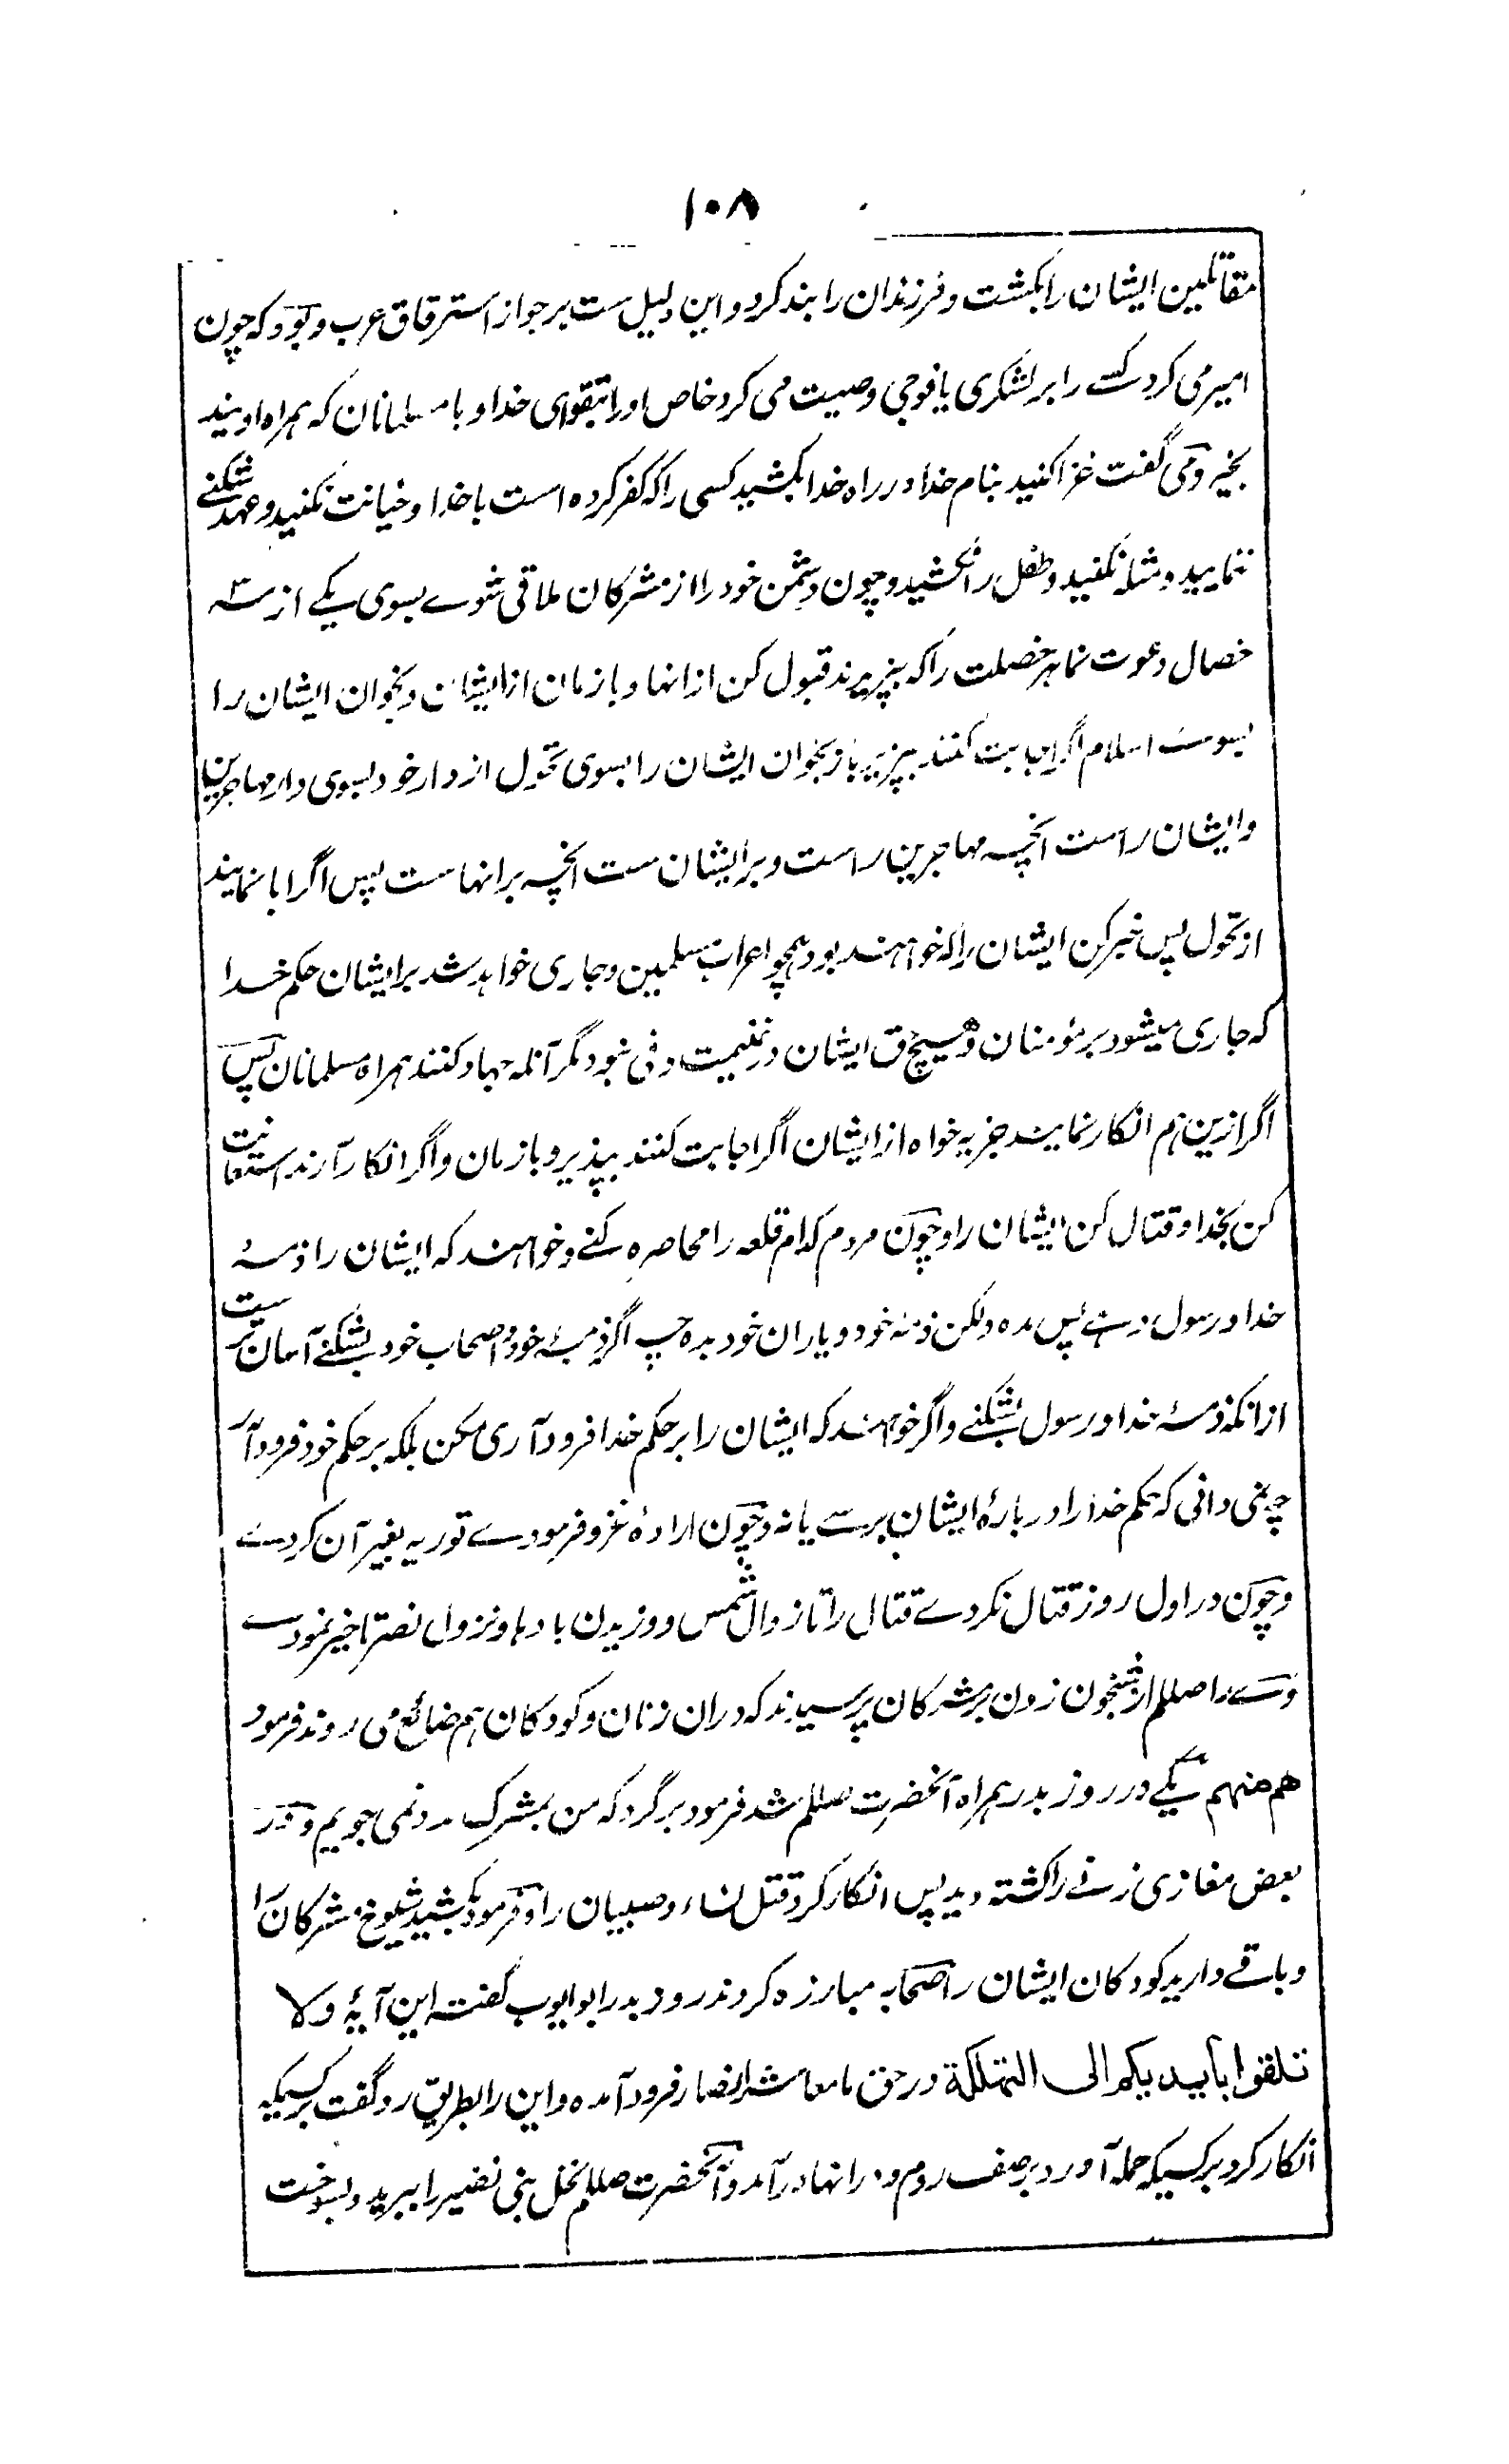 ۱۰۸
مقاتلین ایشان را بکشت و فرزندان را بند کرد و این دلیل ست بر جواز استرقاق عرب و بود که چون
امیر می کرد کسے را بر لشکری یا فوجی وصیت می کرد خاص او را بتقوای خدا و با مسلمانان که همراه اویند
بخیر و می گفت غزا کنید بنام خدا در راه خدا بکشید کسی را که کفر کرده است با خدا و خیانت نکنید و عهد شکنے
ننمایید و مثله نکنید و طفل را نکشید و چون دشمن خود را از مشرکان ملاقی شوے بسوی یکے از سه
خصال دعوت نما هر خصلت را که بپذیرند قبول کن از انها و بازمان از ایشان و بخوان ایشان را
بسوے اسلام اگر اجابت کنند بپذیر باز بخوان ایشان را بسوی تحول از دار خود بسوی دار مهاجرین
و ایشان راست آنچه مهاجرین راست و بر ایشان ست آنچه بر انهاست پس اگر ابا نمایند
از تحول پس خبر کن ایشان را که خواهند بود همچو اعراب مسلمین و جاری خواهد شد بر ایشان حکم خدا
که جاری میشود بر مؤمنان و هیچ حق ایشان در غنیمت و فی نبود مگر آنکه جهاد کنند همراه مسلمانان پس
اگر ازین هم انکار نمایند جزیه خواه از ایشان اگر اجابت کنند بپذیر و بازمان و اگر انکار آرند استعانت
کن بخدا و قتال کن ایشان را و چون مردم کدام قلعه را محاصره کنے و خواهند که ایشان را ذمۂ
خدا و رسول دہے پس مده و لکن ذمۂ خود و یاران خود بده چه اگر ذمۂ خود و اصحاب خود بشکنے آسان تر ست
از انکه ذمۂ خدا و رسول بشکنے و اگر خواهند که ایشان را بر حکم خدا فرود آری مکن بلکه بر حکم خود فرود آر
چه نمی دانی که حکم خدا را در بارۂ ایشان برسے یا نه و چون ارادۂ غزو فرمودے توریه بغیر آن کردے
و چون در اول روز قتال نکردے قتال را تا زوال شمس و وزیدن بادها و نزول نصر تاخیر نمودے
وے را صللم از شبخون زدن بر مشرکان پرسیدند که دران زنان و کودکان هم ضائع می روند فرمود
هم منهم یکے در روز بدر همراه آنحضرت صللم شد فرمود برگرد که من بمشرک مدد نمی جویم و در
بعض مغازی زنے را کشته دید پس انکار کرد قتل نساء و صبیان را و فرمود بکشید شیوخ مشرکان را
و باقے دارید کودکان ایشان را صحابه مبارزه کردند روز بدر ابو ایوب گفته این آیۂ ولا
تلقوا بایدیکم الی التهلکة در حق ما معاشر انصار فرود آمده و این را بطریق رد گفت بر کسیکه
انکار کرد بر کسیکه حمله آورد بر صف روم و در انها درآمد و آنحضرت صللم نخل بنی نضیر را ببرید و بسوخت